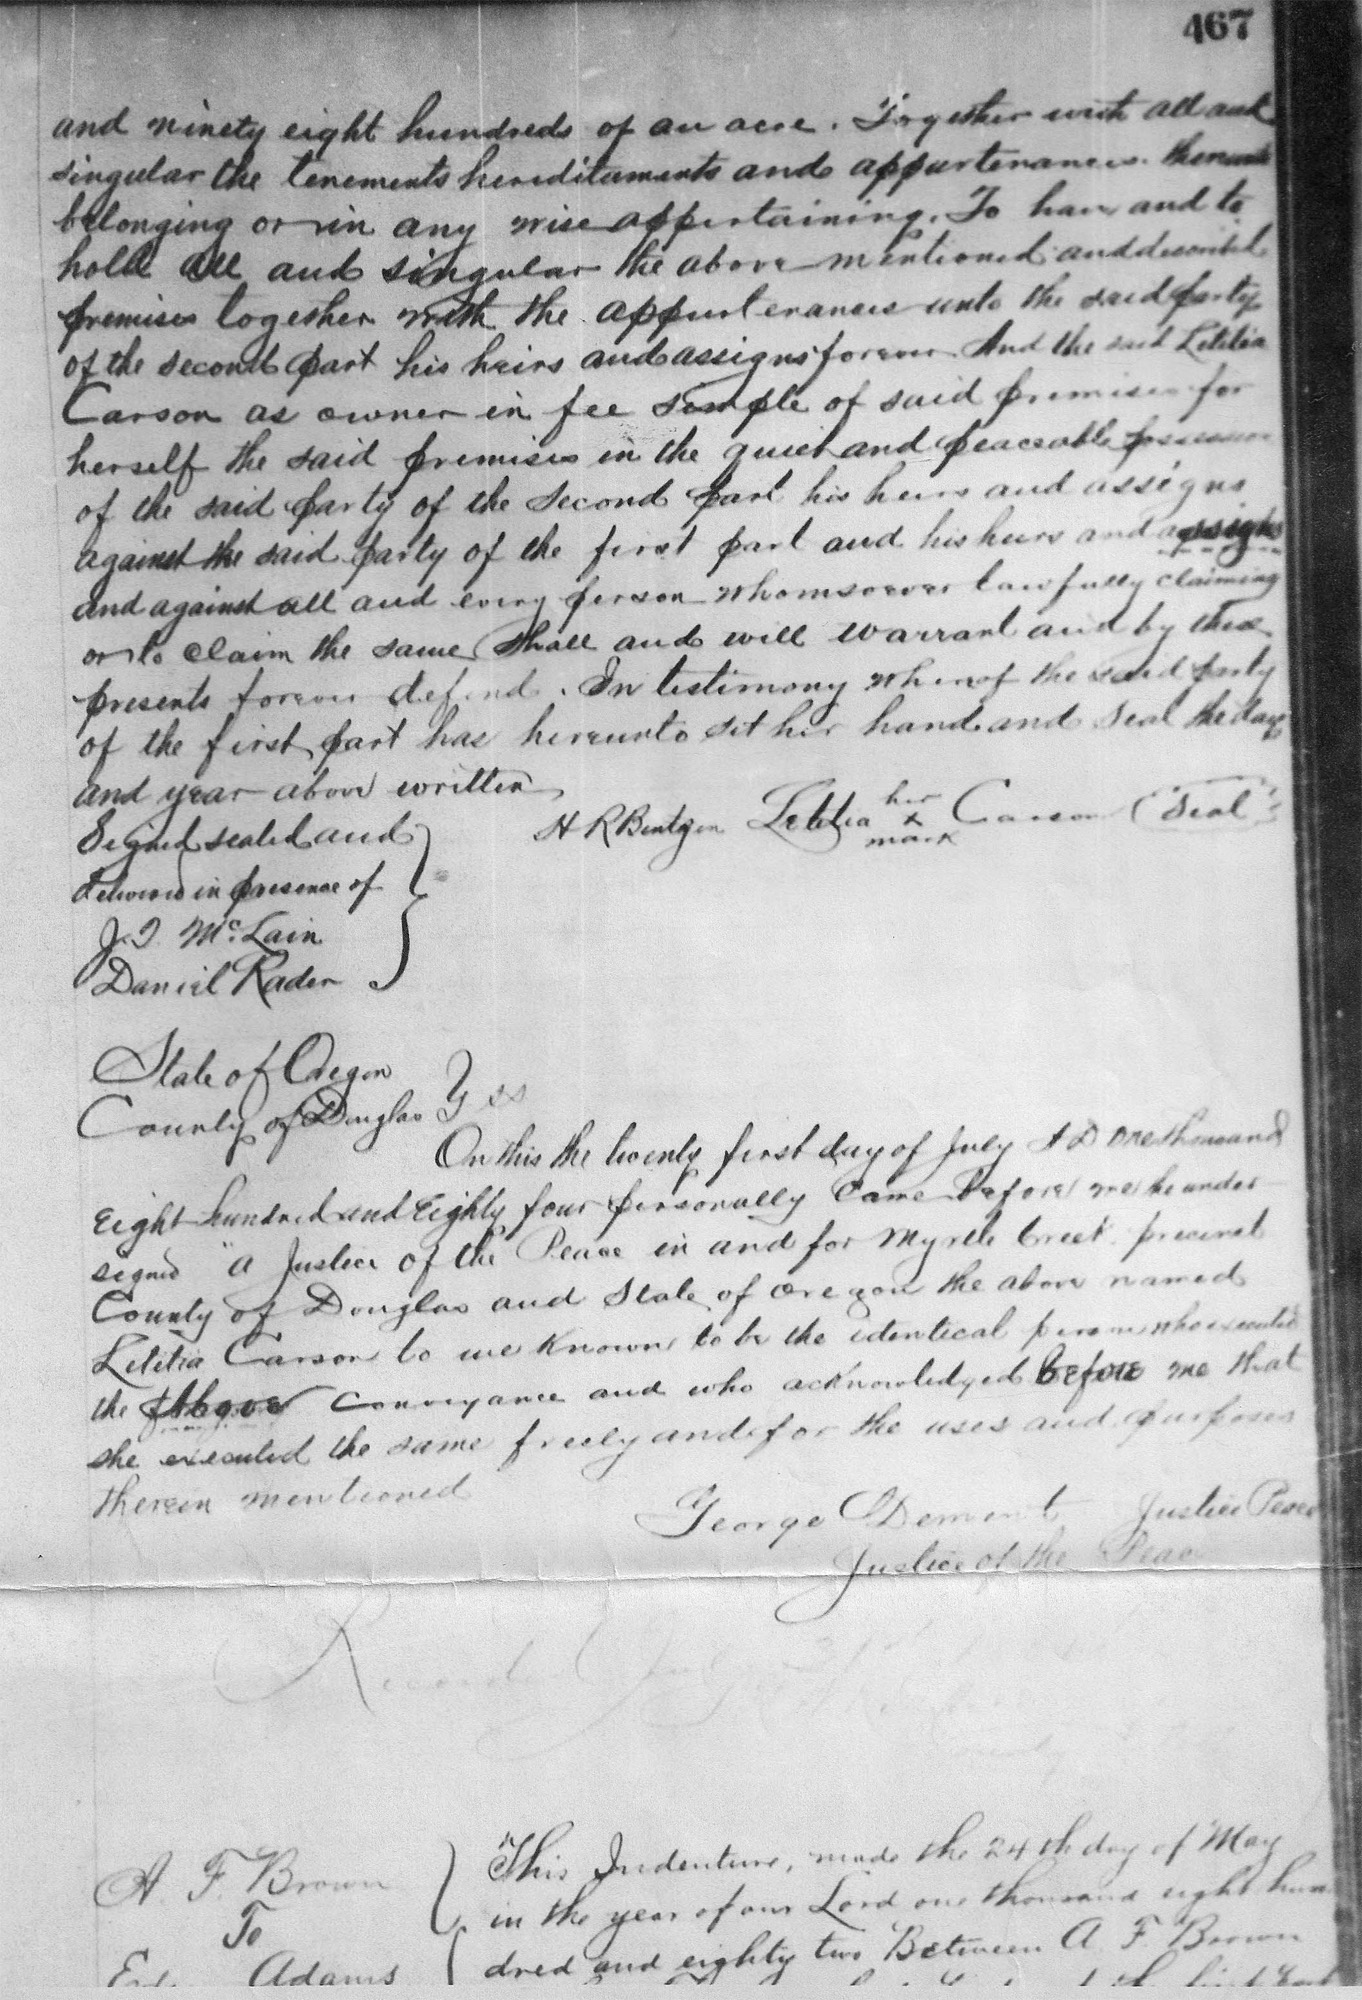 467
and ninety eight hundreds of an acre. Together with all and
singular the tenements hereditaments and appurtenances thereunto
belonging or in any wise appertaining. To have and to
hold all and singular the above mentioned and described
premises together with the appurtenances unto the said party
of the second part his heirs and assigns forever And the said Letitia
Carson as owner in fee simple of said premises for
herself the said premises in the quiet and peaceable possession
of the said party of the second part his heirs and assigns
against the said party of the first part and his heirs and assigns
and against all and every person whomsoever lawfully claiming
or to claim the same shall and will warrant and by these
presents forever defend. In testimony whereof the said party
of the first part has hereunto set her hand and seal the day
and year above written
H R Bentzen Letitia her x mark Carson (Seal)
Signed sealed and
delivered in presence of
J. T. McLain
Daniel Rader
State of Oregon
County of Douglas } ss
On this the twenty first day of July A D one thousand
Eight hundred and Eighty four personally came before me the under
signed a Justice of the Peace in and for Myrtle Creek precinct
County of Douglas and State of Oregon the above named
Letitia Carson to me known to be the identical person who executed
the above conveyance and who acknowledged before me that
she executed the same freely and for the uses and purposes
therein mentioned
George Dement Justice Peace
Justice of the Peace
Recorded July
A. F. Brown
To
Adams
This Indenture, made the 24th day of May
in the year of our Lord one thousand eight hun
dred and eighty two Between A. F. Brown